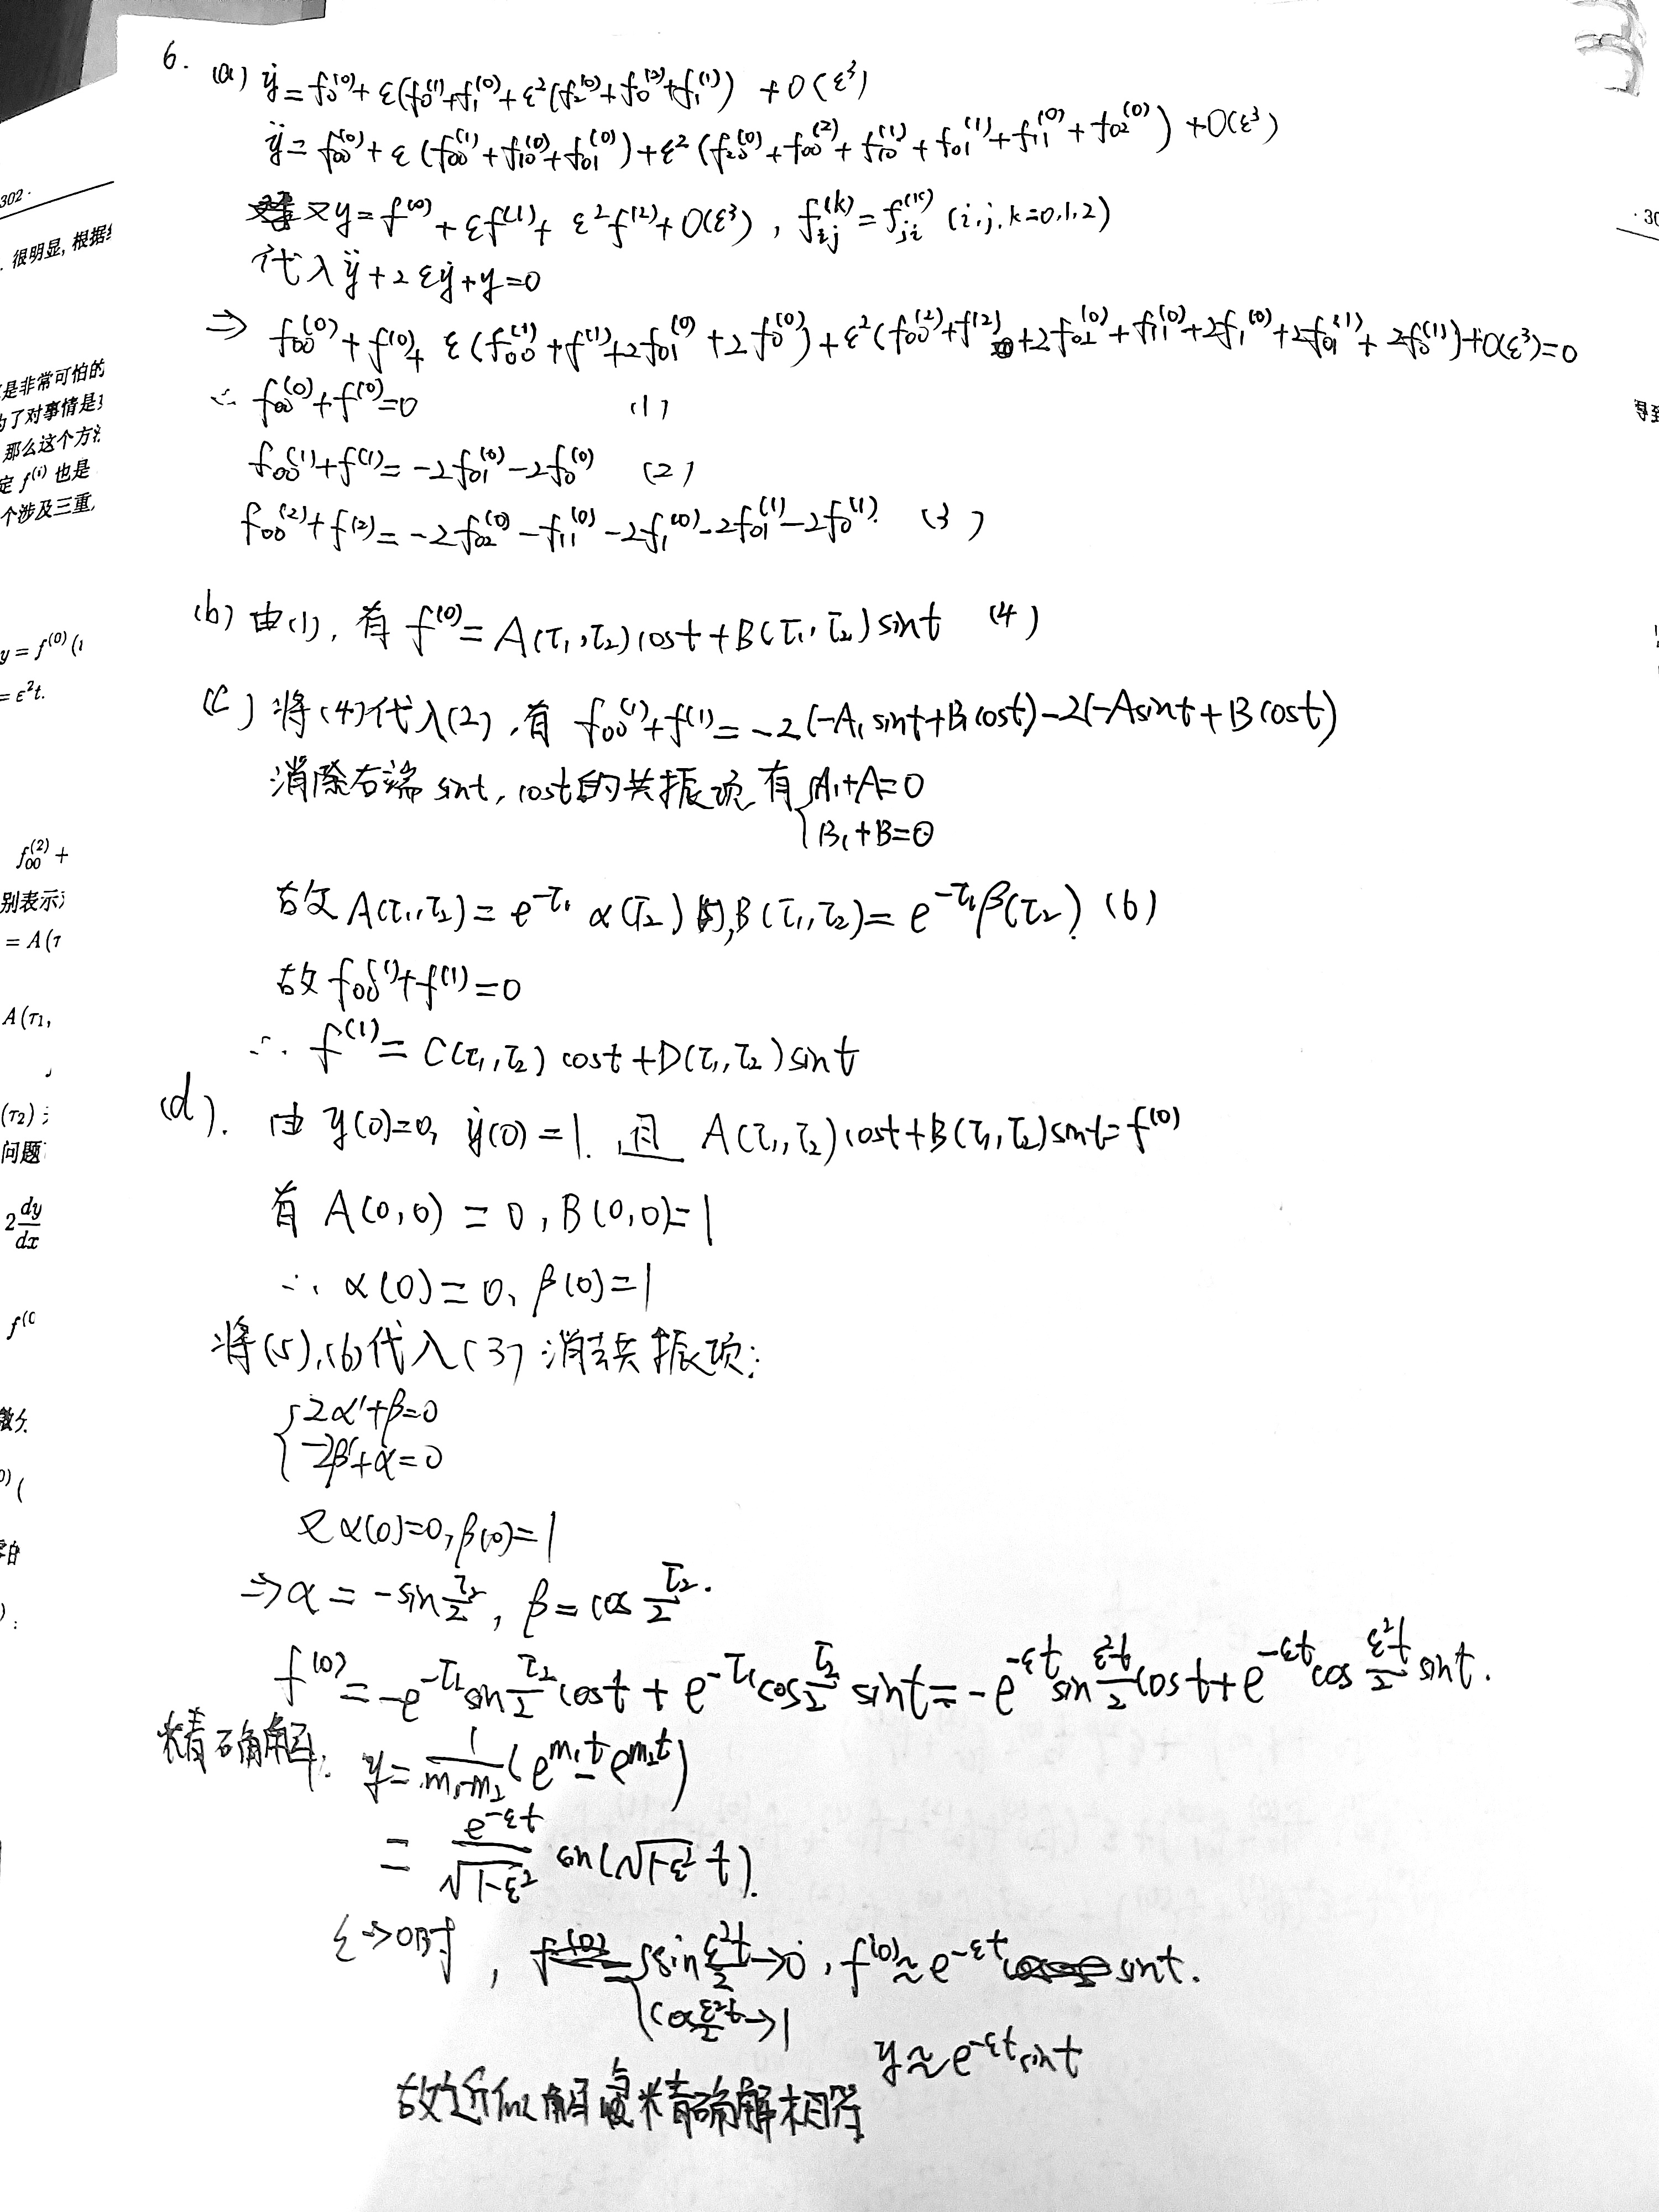 302 ·
. 很明显, 根据
是非常可怕的
为了对事情是
那么这个方
定 f^{(i)} 也是
个涉及三重,
y = f^{(0)} (
= ε²t.
f_{00}^{(2)} +
别表示
= A(τ
A(τ₁,
(τ₂)
问题
2 dy/dx
· 30
得到
6. (a) ẏ = f_0^{(0)} + ε(f_0^{(1)} + f_1^{(0)} + ε²(f_2^{(0)} + f_0^{(2)} + f_1^{(1)}) + O(ε³)
ÿ = f_{00}^{(0)} + ε(f_{00}^{(1)} + f_{10}^{(0)} + f_{01}^{(0)}) + ε²(f_{20}^{(0)} + f_{00}^{(2)} + f_{10}^{(1)} + f_{01}^{(1)} + f_{11}^{(0)} + f_{02}^{(0)}) + O(ε³)
又 y = f^{(0)} + εf^{(1)} + ε²f^{(2)} + O(ε³), f_{ij}^{(k)} = f_{ji}^{(k)} (i,j,k=0,1,2)
代入 ÿ + 2εẏ + y = 0
⇒ f_{00}^{(0)} + f^{(0)} + ε(f_{00}^{(1)} + f^{(1)} + 2f_{01}^{(0)} + 2f_0^{(0)}) + ε²(f_{00}^{(2)} + f^{(2)} + 2f_{02}^{(0)} + f_{11}^{(0)} + 2f_1^{(0)} + 2f_{01}^{(1)} + 2f_0^{(1)}) + O(ε³) = 0
∴ f_{00}^{(0)} + f^{(0)} = 0 (1)
f_{00}^{(1)} + f^{(1)} = -2f_{01}^{(0)} - 2f_0^{(0)} (2)
f_{00}^{(2)} + f^{(2)} = -2f_{02}^{(0)} - f_{11}^{(0)} - 2f_1^{(0)} - 2f_{01}^{(1)} - 2f_0^{(1)}. (3)
(b) 由(1), 有 f^{(0)} = A(τ₁,τ₂)cost + B(τ₁,τ₂)sint (4)
(c) 将(4)代入(2), 有 f_{00}^{(1)} + f^{(1)} = -2(-A₁sint + B₁cost) - 2(-Asint + Bcost)
消除右端 sint, cost的共振项 有 { A₁+A=0
B₁+B=0
故 A(τ₁,τ₂) = e^{-τ₁} α(τ₂), B(τ₁,τ₂) = e^{-τ₁}β(τ₂). (6)
故 f_{00}^{(1)} + f^{(1)} = 0
∴ f^{(1)} = C(τ₁,τ₂) cost + D(τ₁,τ₂)sint
(d). 由 y(0)=0, ẏ(0)=1. 且 A(τ₁,τ₂)cost + B(τ₁,τ₂)sint = f^{(0)}
有 A(0,0) = 0, B(0,0) = 1
∴ α(0) = 0, β(0) = 1
将(5),(6)代入(3) 消去共振项:
{ 2α'+β=0
-2β'+α=0
又 α(0)=0, β(0)=1
⇒ α = -sin τ₂/2, β = cos τ₂/2.
f^{(0)} = -e^{-τ₁}sin τ₂/2 cost + e^{-τ₁}cos τ₂/2 sint = -e^{-εt}sin ε²t/2 cost + e^{-εt}cos ε²t/2 sint.
精确解: y = 1/(m₁-m₂) (e^{m₁t} - e^{m₂t})
= e^{-εt}/√(1-ε²) sin(√(1-ε²) t).
ε→0时, { sin ε²t/2 → 0, f^{(0)} ≈ e^{-εt} sint.
cos ε²t/2 → 1
y ≈ e^{-εt}sint
故近似解与精确解相符